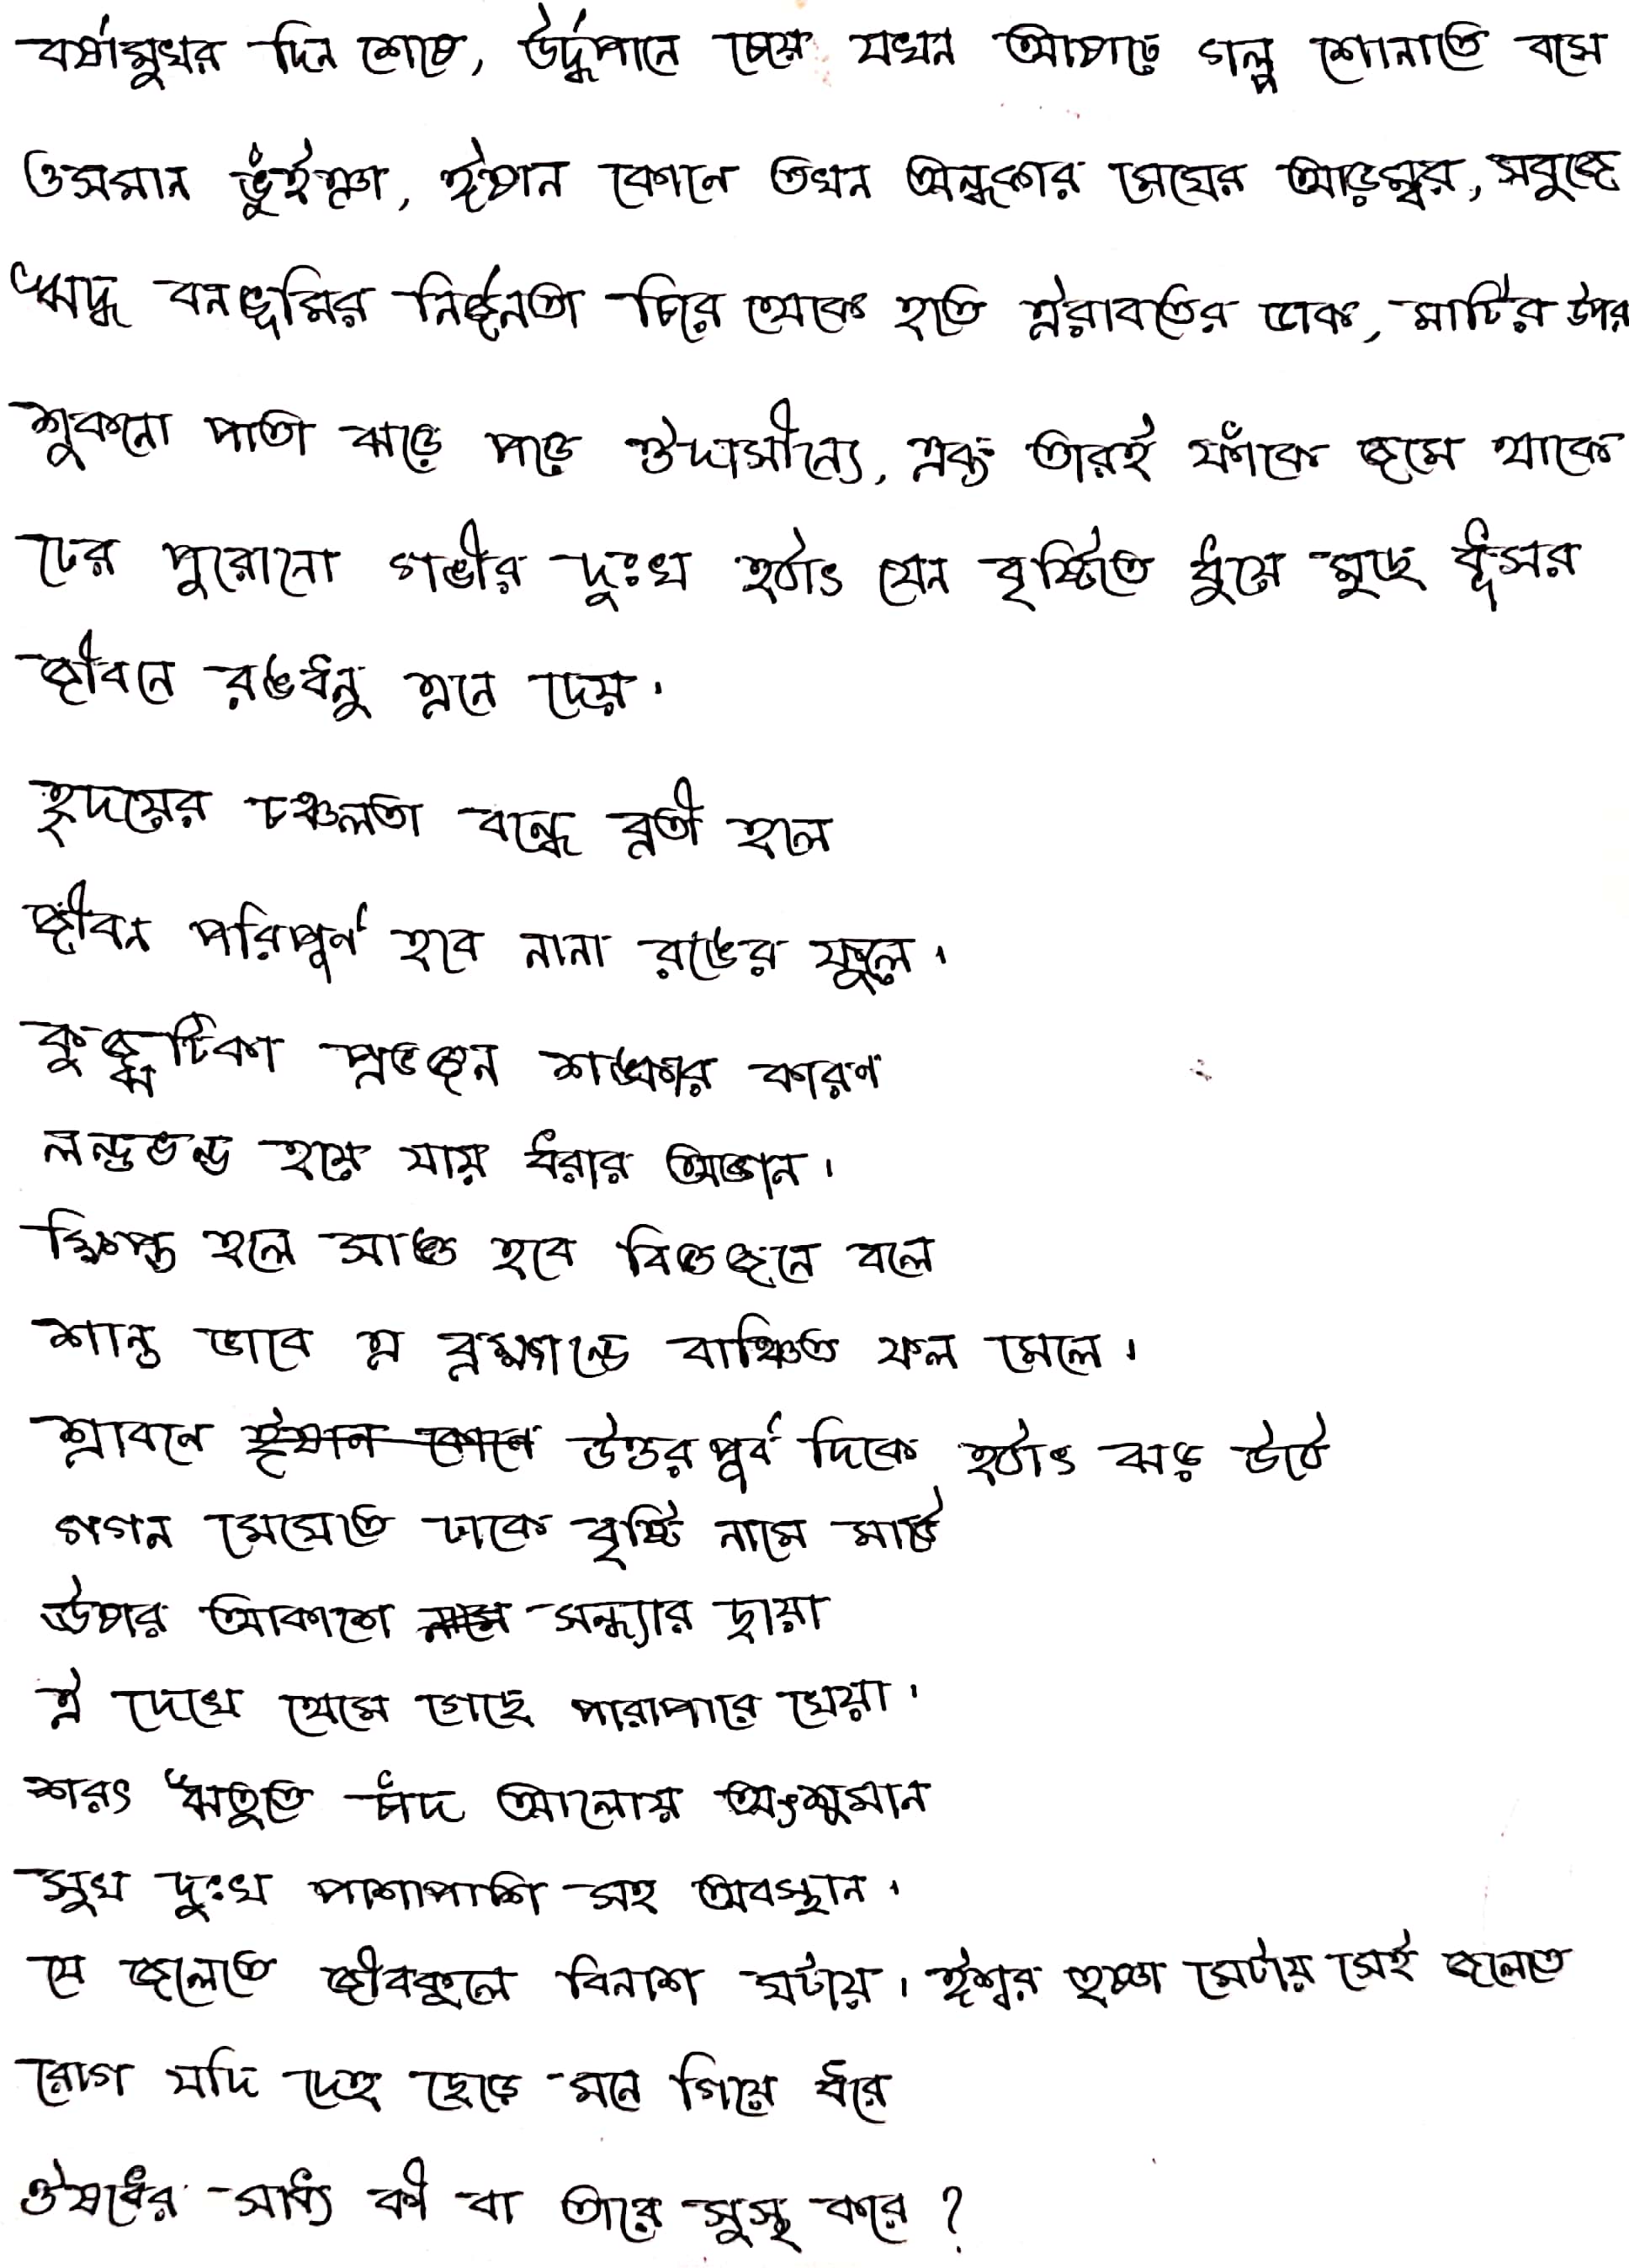 বর্ষামুখর দিন শেষে, উর্দ্ধপানে চেয়ে যখন আষাঢ়ে গল্প শোনাতে বসে
ওসমান ভুঁইঞা, ঈষান কোনে তখন অন্ধকার মেঘের আড়ম্বর, সবুজে
ঋদ্ধ বনভূমির নির্জনতা চিরে থেকে হতে ঐরাবতের ডাক, মাটির উপর
শুকনো পাতা ঝড়ে পড়ে ঔদাসীন্যে, এবং তারই ফাঁকে জমে থাকে
ঢের পুরোনো গভীর দুঃখ হঠাৎ যেন বৃষ্টিতে ধুয়ে মুছে ধূসর
জীবনে রঙধনু এনে দেয়।
হৃদয়ের চঞ্চলতা বন্ধে ব্রতী হলে
জীবন পরিপূর্ণ হবে নানা রঙের ফুলে।
কুজ্ঝটিকা প্রভঞ্জন শঙ্কার কারণ
লন্ডভন্ড হয়ে যায় ধরার অঙ্গন।
ক্ষিপ্ত হলে সাঙ্গ হবে বিজ্ঞজনে বলে
শান্ত ভাবে এ ব্রহ্মাণ্ডে বাঞ্চিত ফল মেলে।
শ্রাবনে উত্তরপূর্ব দিকে হঠাৎ ঝড় উঠে
গগন মেঘেতে ঢাকে বৃষ্টি নামে মাঠে
ঊষার আকাশে সন্ধ্যার ছায়া
ঐ দেখে থেমে গেছে পারাপারে খেয়া।
শরৎ ঋতুতে চাঁদ আলোয় অংশুমান
সুখ দুঃখ পাশাপাশি সহ অবস্থান।
যে জলেতে জীবকুলে বিনাশ ঘটায়। ঈশ্বর তৃষ্ণা মেটায় সেই জলেতে
রোগ যদি দেহ ছেড়ে মনে গিয়ে ধরে
ঔষধের সাধ্য কী বা তারে সুস্থ করে?